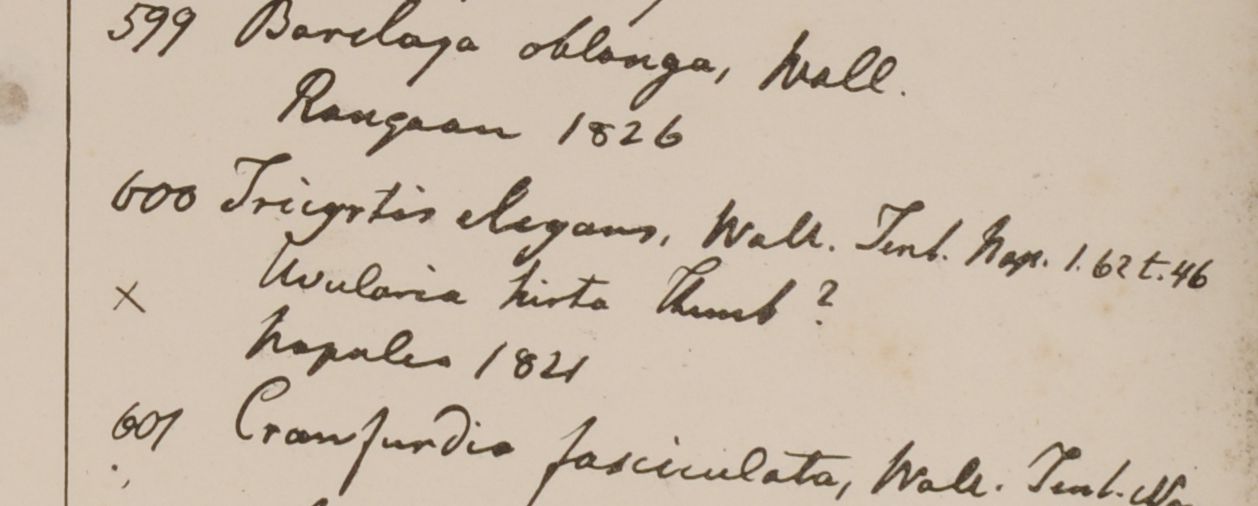 599 Barclaya oblonga, Wall.
Rangoon 1826
600 Tricyrtis elegans, Wall. Tent. Nap. 1. 62 t. 46
Uvularia hirta Thunb?
× Napalia 1821
601 Crawfurdia fasciculata, Wall. Tent.